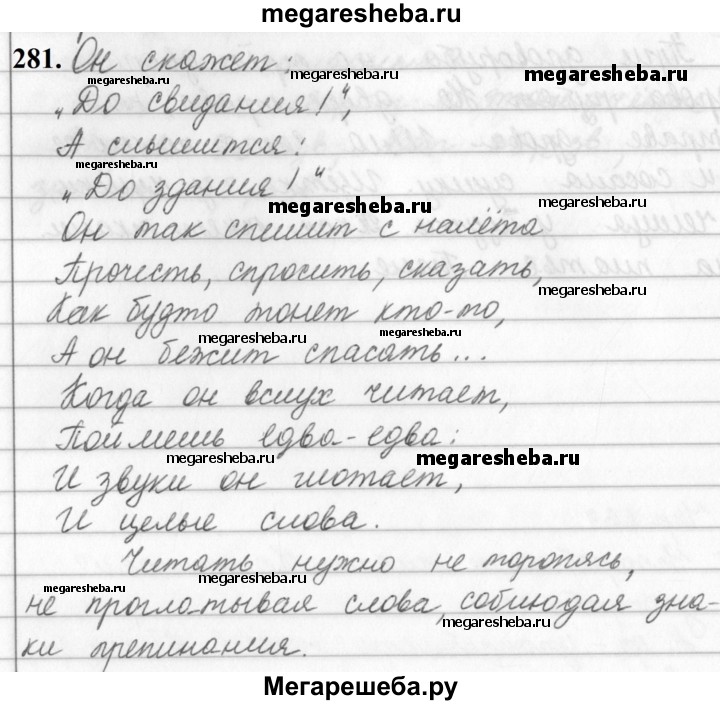 megaresheba.ru
281. Он скажет:
megaresheba.ru
megaresheba.ru
„До свидания!“,
megaresheba.ru
А слышится:
megaresheba.ru
„До здания!“
megaresheba.ru
megaresheba.ru
Он так спешит с налёта
Прочесть, спросить, сказать,
megaresheba.ru
Как будто тонет кто-то,
megaresheba.ru
megaresheba.ru
А он бежит спасать...
Когда он вслух читает,
Поймешь едва-едва:
megaresheba.ru
megaresheba.ru
И звуки он глотает,
И целые слова.
Читать нужно не торопясь,
megaresheba.ru
megaresheba.ru
не проглатывая слова, соблюдая зна-
megaresheba.ru
ки препинания.
Мегарешеба.ру